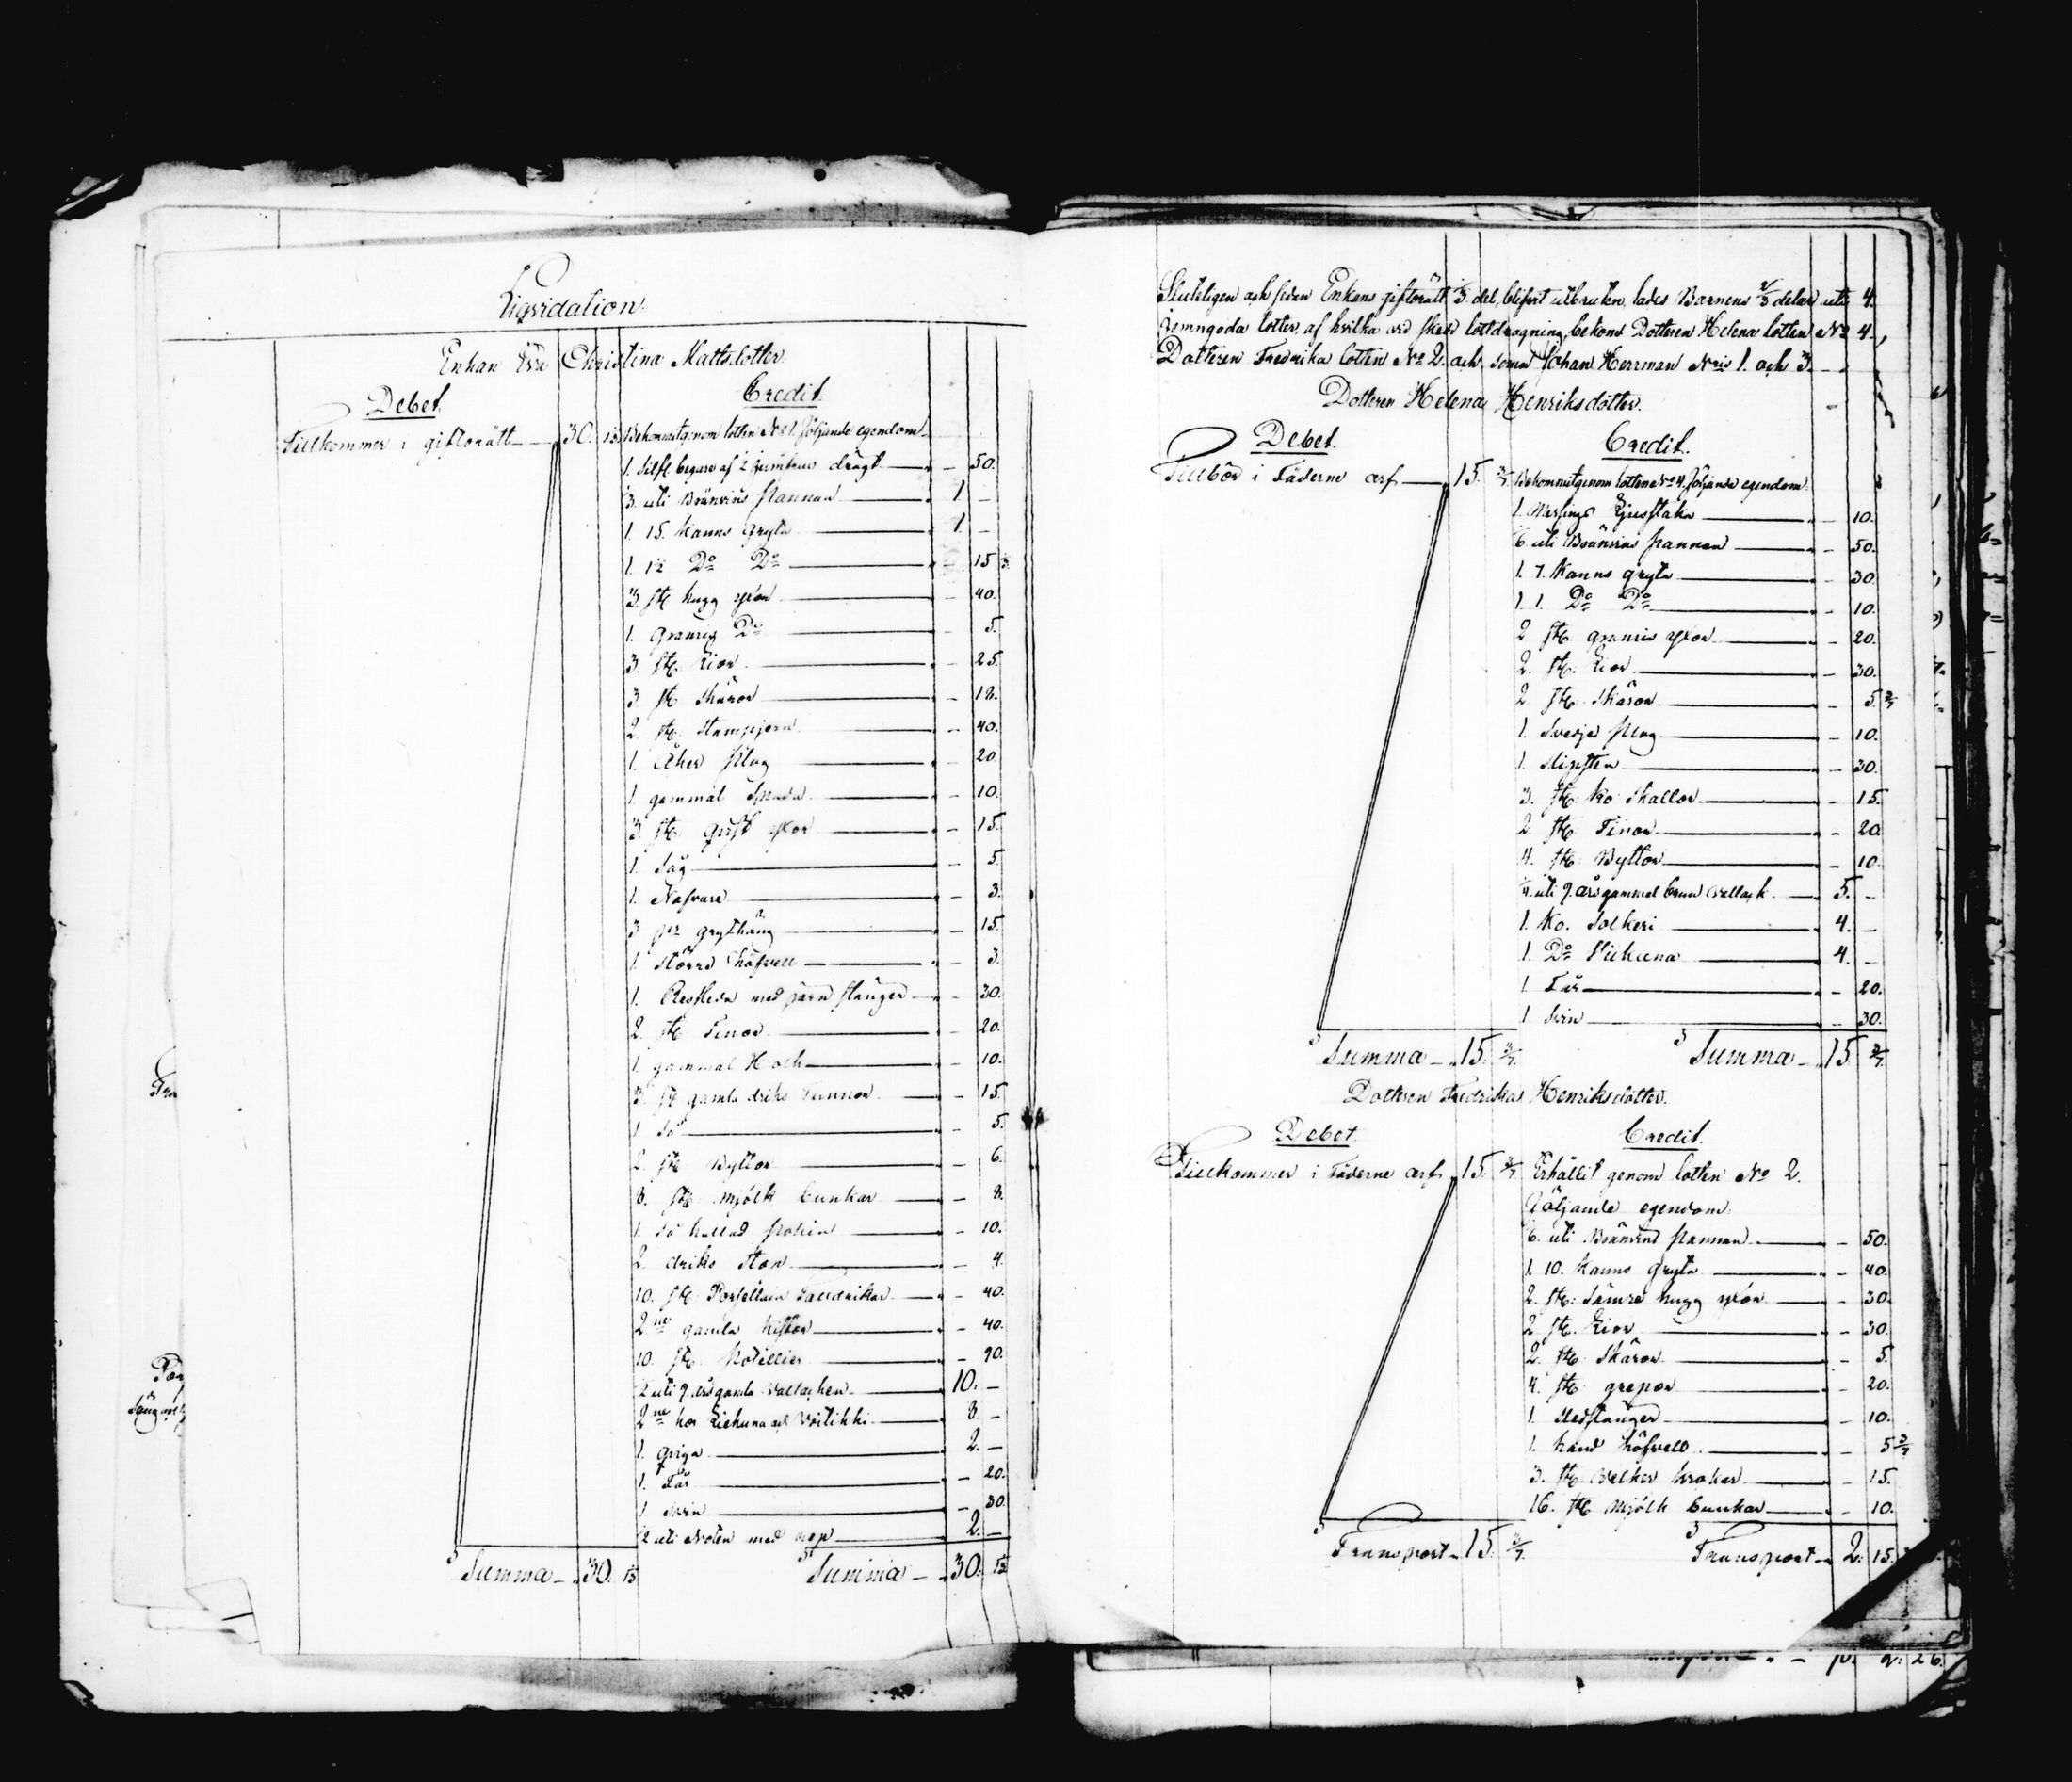 Liqvidation.
Enkan Eva Christina Mattsdotter.
Debet.
Credit.
Tillkommer i giftorätt 30. 13
Bekommit genom lotten No 1. följande egendom
1. Silf. begare af 2 drägt 50.
3 uti Brännvins pannan 1 –
1. 15. kanns gryta 1 –
1. 12 Do Do 15
3. st hugg yxor 40.
1. granrig Do 5.
3. st: Lior 25
3. st Skäror 12.
2. st: Stampjern 40.
1. Åker plog 20
1. gammal Spada 10.
3. st: yxor 15.
1. Såg 5.
1. Nafvare 3.
3 par grythäng 15.
1. Större höfvell 3.
1. Reskeda med järn stänger 30.
2. st Tinor 20.
1. gammal Hoch 10.
3. st gamla driks Tunnor 15.
1. Så 5.
2. st Byttor 6.
8. st: mjölk bunkar 8.
1. så kallad 10.
2. driks stop 4.
10. st: Porsellain Talldrikar 40.
2ne gamla kistor 40.
10. st: boteillier 90.
1/2 uti 9. års gamla vallachen 10. –
2ne kor Liehuna och Voitikki 8. –
1. qviga 2. –
1. Får 20.
1. svin 30.
1/2 uti Noten med rep 2. –
Summa 30. 13
Summa 30. 13
Sluteligen och sedan Enkans giftorätt 1/3 del, blifvit utbruten, lades Barnens 2/3 delar uti 4.
jemngoda lotter, af hvilka vid skedd lottdragning bekom Dotteren Helena lotten No 4.,
Dotteren Fredrika lotten No 2. och sonen Johan Herrman Nris 1. och 3.
Dotteren Helena Henriksdotter.
Debet.
Credit.
Tillhör i Fäderne arf 15. 3/7
Bekommit genom lotten No 4. följande egendom
1. Messings Ljusstaka 10.
1/6 uti Brännvins pannan 50.
1. 7. kanns gryta 30.
1. 1. Do Do 10.
2 st: granris yxor 20.
2. st. Lior 30.
2 st: Skäror 5. 3/7
1. Svedje plog 10.
1. Slipsten 30.
3. st: ko skallor 15.
2. st: Tinor 20.
4. st: Byttor 10.
1/4 uti 9. års gammal brun vallack 5. –
1. ko. Solkeri 4. –
1. Do 4. –
1 Får 20.
1 Svin 30.
Summa 15. 3/7
Summa 15 3/7
Dotteren Fredrika Henriksdotter.
Debet
Credit.
Tillkommer i Fäderne arf 15. 3/7
Erhållit genom lotten No 2.
följande egendom:
1/6 uti Brännvins pannan 50.
1. 10. kanns gryta 40.
2. st: sämre hugg yxor 30.
2 st. Lior 30.
2. st: Skäror 5.
4. st: grepor 20.
1. stänger 10.
1. hand höfvell 5 3/7
3. st: krokar 15.
16. st: mjölk bunkar 10.
Transport 15. 3/7
Transport 2. 15.